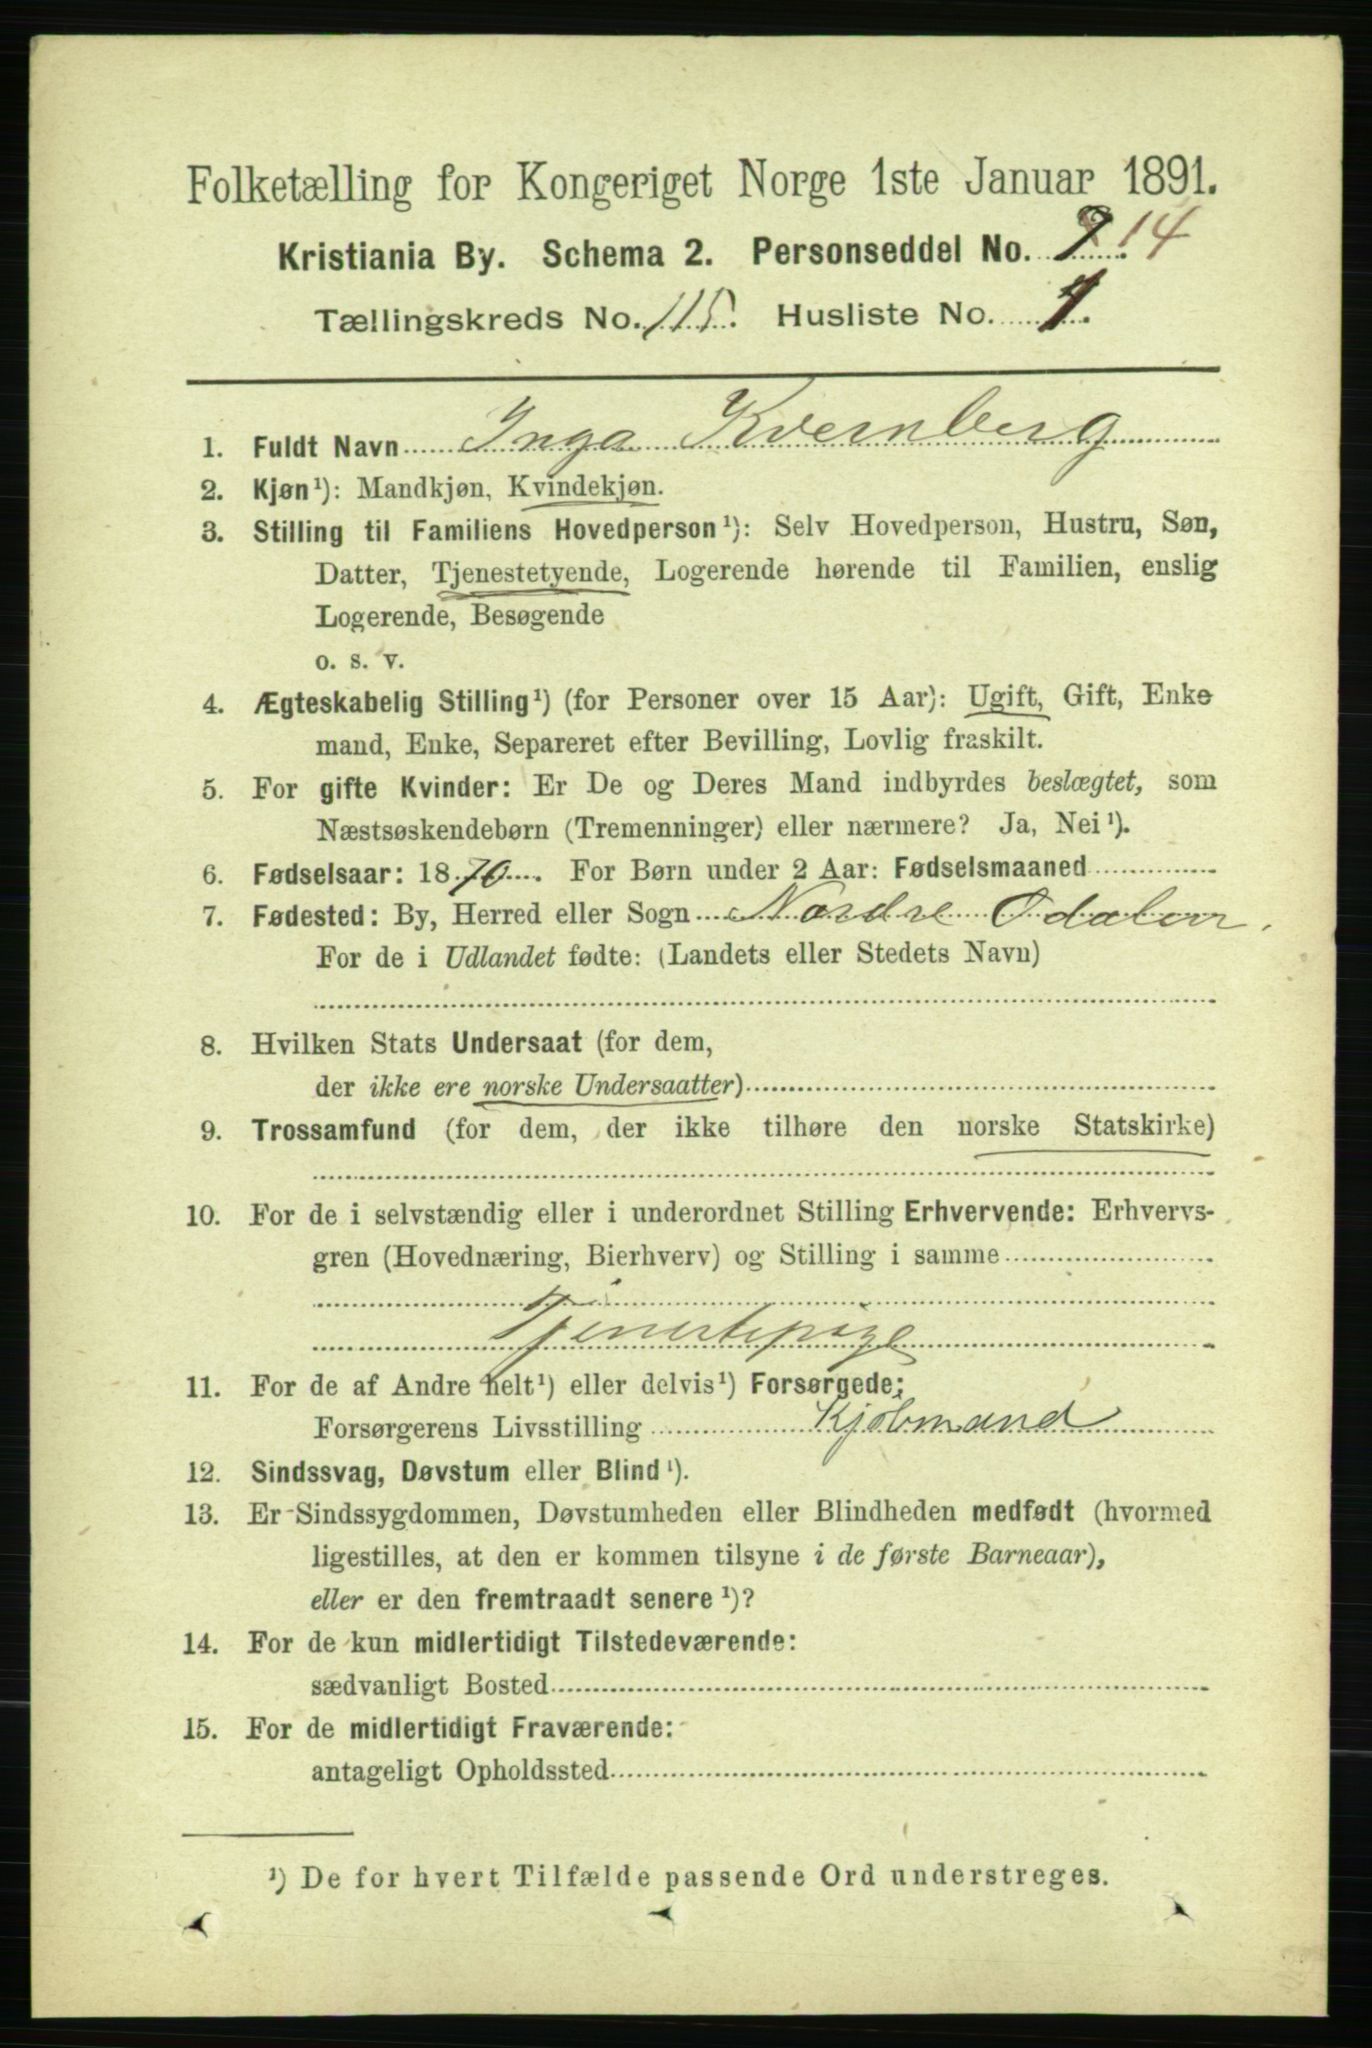 Folketælling for Kongeriget Norge 1ste Januar 1891.
Kristiania By. Schema 2. Personseddel No. 9 14
Tællingskreds No. 115. Husliste No. 7.
1. Fuldt Navn Inga Kvernberg
2. Kjøn¹): Mandkjøn, Kvindekjøn.
3. Stilling til Familiens Hovedperson¹): Selv Hovedperson, Hustru, Søn,
Datter, Tjenestetyende, Logerende hørende til Familien, enslig
Logerende, Besøgende
o. s. v.
4. Ægteskabelig Stilling¹) (for Personer over 15 Aar): Ugift, Gift, Enke
mand, Enke, Separeret efter Bevilling, Lovlig fraskilt.
5. For gifte Kvinder: Er De og Deres Mand indbyrdes beslægtet, som
Næstsøskendebørn (Tremenninger) eller nærmere? Ja, Nei¹).
6. Fødselsaar: 1870. For Børn under 2 Aar: Fødselsmaaned
7. Fødested: By, Herred eller Sogn Nordre Odalen.
For de i Udlandet fødte: (Landets eller Stedets Navn)
8. Hvilken Stats Undersaat (for dem,
der ikke ere norske Undersaatter)
9. Trossamfund (for dem, der ikke tilhøre den norske Statskirke)
10. For de i selvstændig eller i underordnet Stilling Erhvervende: Erhvervs-
gren (Hovednæring, Bierhverv) og Stilling i samme
Tjenestepige
11. For de af Andre helt¹) eller delvis¹) Forsørgede:
Forsørgerens Livsstilling Kjøbmand
12. Sindssvag, Døvstum eller Blind¹).
13. Er Sindssygdommen, Døvstumheden eller Blindheden medfødt (hvormed
ligestilles, at den er kommen tilsyne i de første Barneaar),
eller er den fremtraadt senere¹)?
14. For de kun midlertidigt Tilstedeværende:
sædvanligt Bosted
15. For de midlertidigt Fraværende:
antageligt Opholdssted
¹) De for hvert Tilfælde passende Ord understreges.